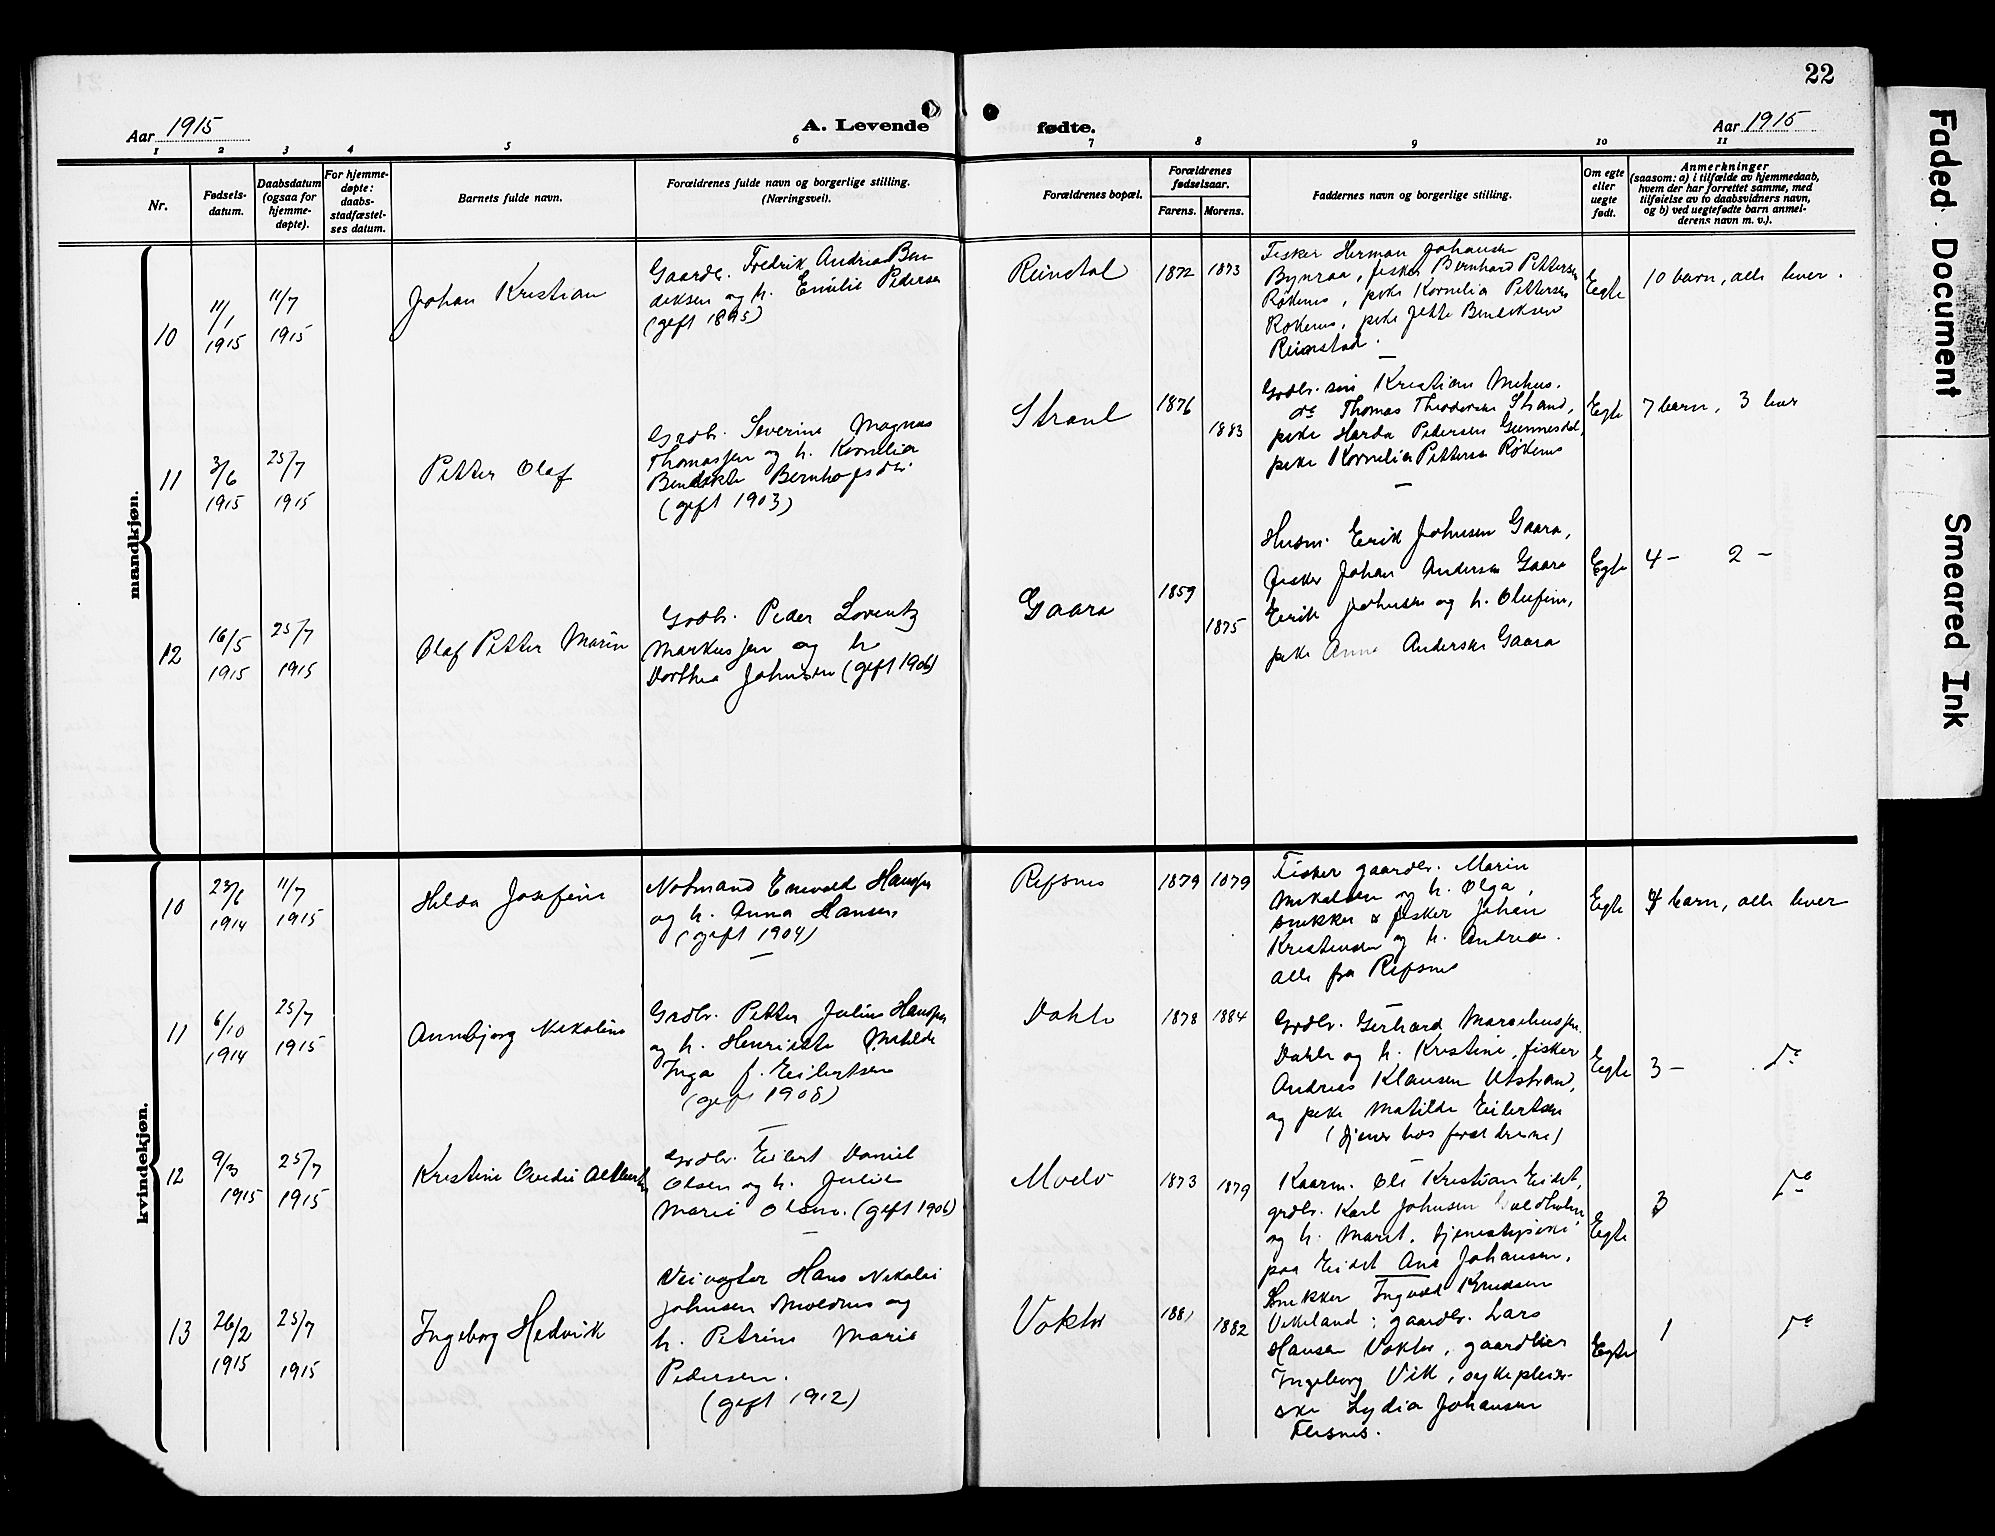 22
Aar 1915
A. Levende
fødte.
Aar 1915
1 2 3 4 5 6 7 8 9 10 11
Nr.
Fødsels-
datum.
Daabsdatum
(ogsaa for
hjemme-
døpte).
For hjemme-
døpte:
daabs-
stadfæstel-
ses datum.
Barnets fulde navn.
Forældrenes fulde navn og borgerlige stilling.
(Næringsvei).
Forældrenes bopæl.
Forældrenes
fødselsaar.
Farens. Morens.
Faddernes navn og borgerlige stilling.
Om egte
eller
uegte
født.
Anmerkninger
(saasom: a) i tilfælde av hjemmedaab,
hvem der har forrettet samme, med
tilføielse av to daabsvidners navn,
og b) ved uegtefødte barn anmel-
derens navn m. v.).
mandkjøn.
10
11/1
1915
11/7
1915
Johan Kristian
Gaardb. Fredrik Andreas Ben
diksen og h. Emilie Pedersen
(gift 1895)
Reinstad
1872
1873
Fisker Herman Johansen
fisker Bernhard Pettersen
Røkenes, pike Kornelia Pettersen
Røkenes, pike Jette Bendiksen
Reinstad.
Egte
10 barn, alle lever.
11
3/6
1915
25/7
1915
Petter Olaf
Grdbr. Severin Magnus
Thomassen og h. Kornelia
Bendikte
(gift 1903)
Strand
1876
1883
Grdbr. søn Kristian
do Thomas Theodorsen Strand,
pike Harda Pedersen
pike Kornelia Pettersen Røkenes
Egte
7 barn, 3 lever
12
16/5
1915
25/7
1915
Olaf Petter Marin
Grdbr. Peder Lorentz
Markussen og h
Dorthea Johnsen (gift 1906)
Gaara
1859
1875
Husm. Erik Johnsen Gaara,
fisker Johan Andersen Gaara
Erik Johnsen og h. Olufine,
pike Anna Andersen Gaara
Egte
4 – 2 –
kvindekjøn.
10
23/6
1914
11/7
1915
Hilda Josefine
Notmand Enevold Hansen
og h. Anna Hansen
(gift 1904)
Refsnes
1879
1879
Fisker gaardbr. Marin
Mikalsen og h. Olga,
snekker & fisker Johan
Kristensen og h. Andrea.
alle fra Refsnes
Egte
4 barn, alle lever
11
6/10
1914
25/7
1915
Annbjørg Nikoline
Grdbr. Petter Julius Hansen
og h. Henriette Matilde
Inga f. Eilertsen
(gift 1908)
Dahle
1878
1884
Grdbr. Gerhard
Dahle og h. Kristine, fisker
Andreas Klausen Utstrand,
og pike Matilde Eilertsen
(tjener hos forældrene)
Egte
3 – do
12
9/3
1915
25/7
1915
Kristine Ovedie
Grdbr. Eilert Daniel
Olsen og h. Julie
Marie Olsen. (gift 1906)
Moelv
1873
1879
Kaarm. Ole Kristian Eidet,
grdbr. Karl Johnsen
og h. Maret, tjenestepike
paa Eidet Ane Johansen.
Egte
3 do
13
26/2
1915
25/7
1915
Ingeborg Hedvik
Veivogter Hans Nikolai
Johnsen Moldnes og
h. Petrine Marie
Pedersen.
(gift 1912)
Voktor
1881
1882
Snekker Ingvald Knudsen
Vikeland; gaardbr. Lars
Hansen Voktor, gaardbr.
Ingeborg Vik, sykepleier-
ske Lydia Johansen
Flesnes.
Egte
1 do
Faded Document
Smeared Ink